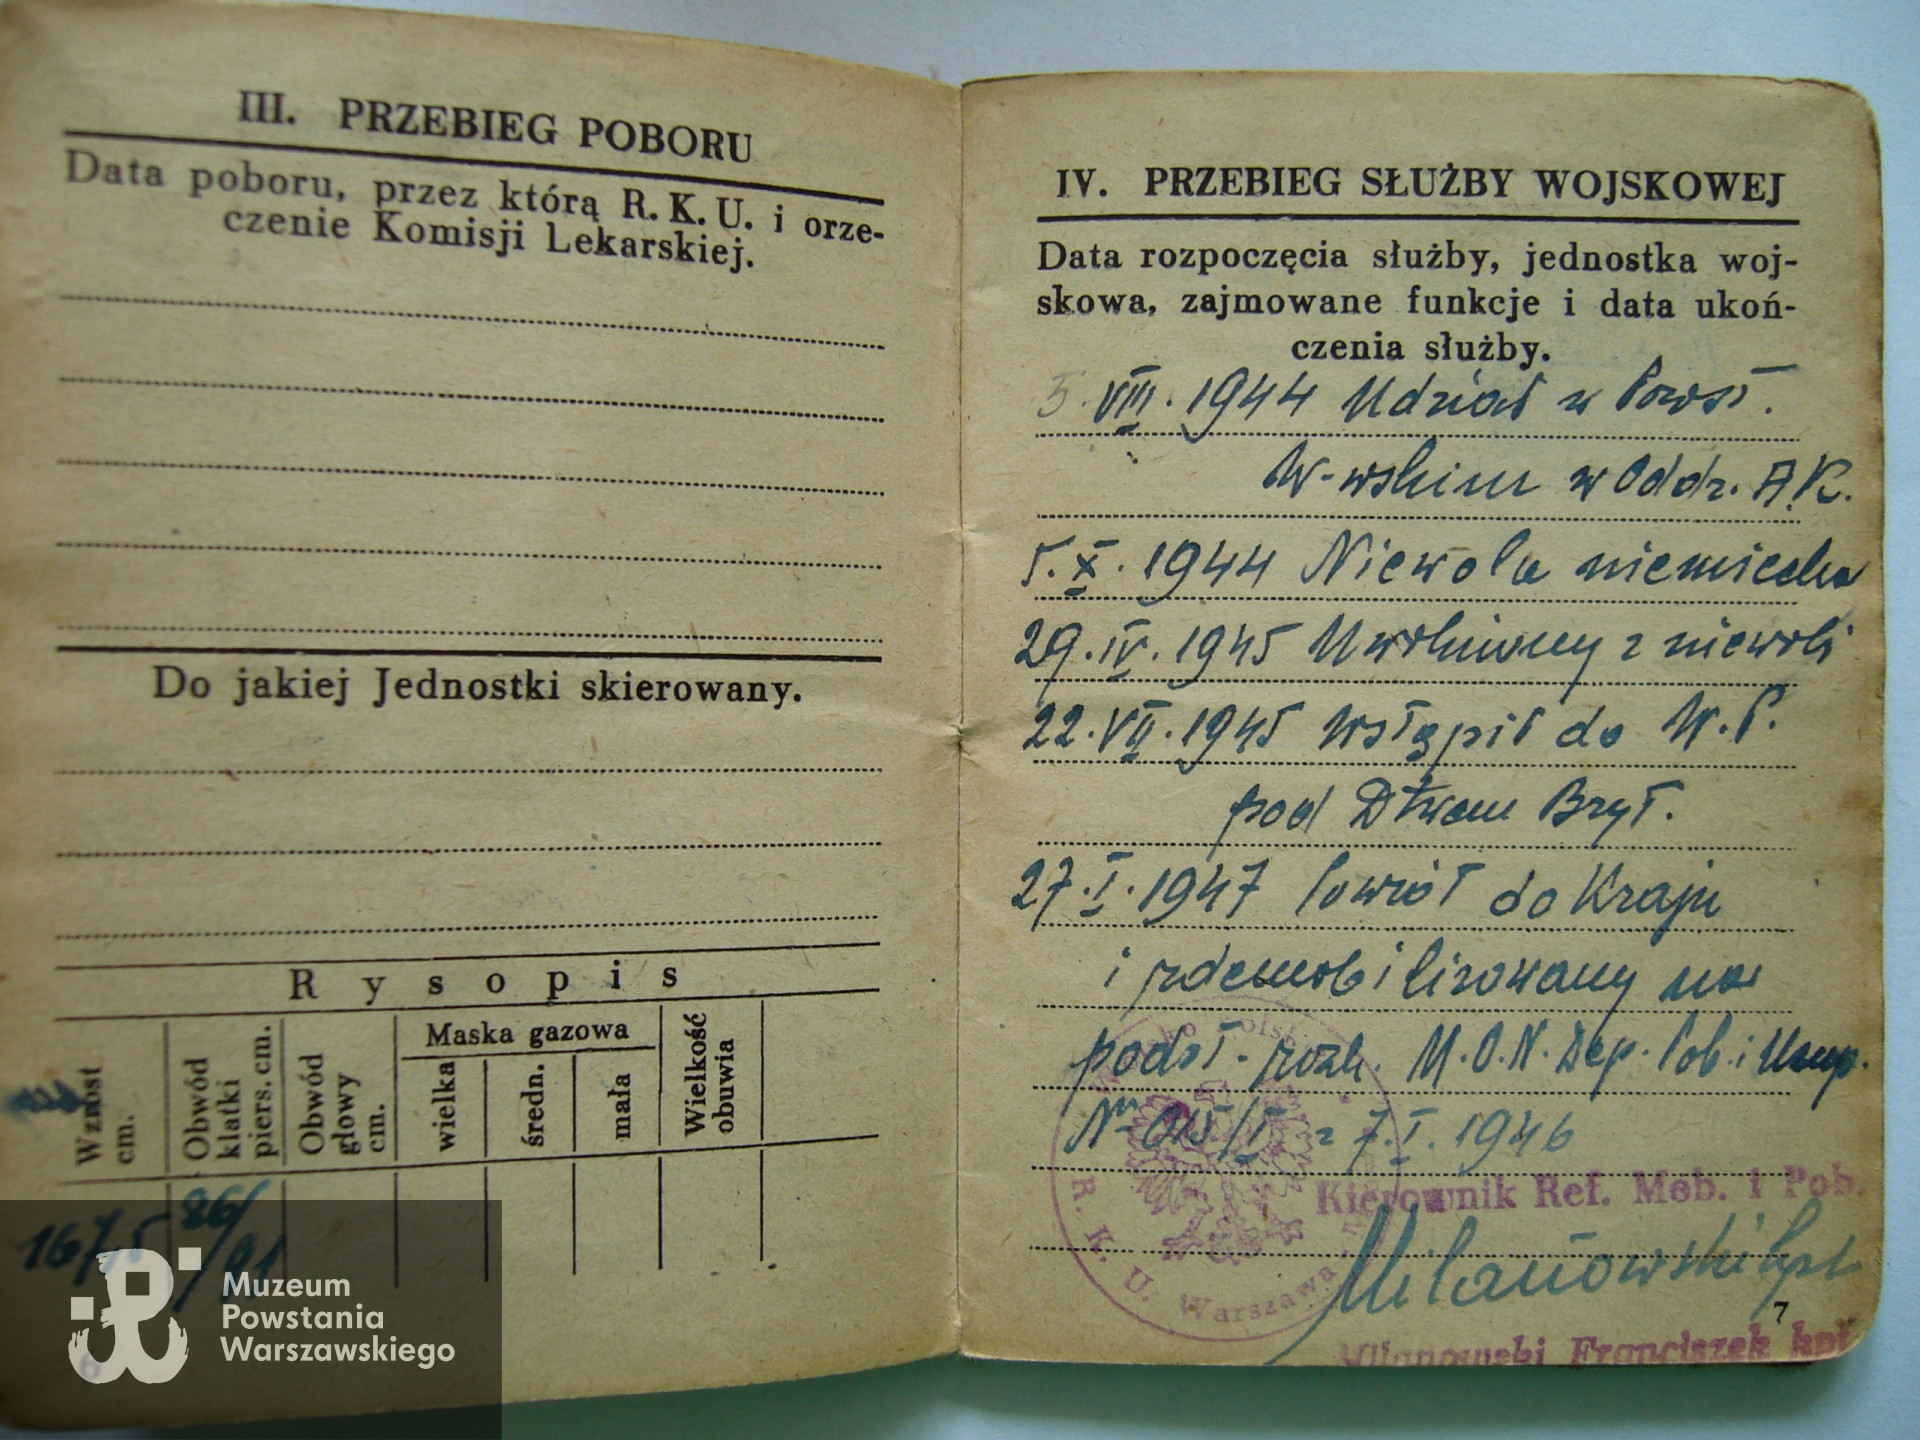 III. PRZEBIEG POBORU
Data poboru, przez którą R. K. U. i orze-
czenie Komisji Lekarskiej.
Do jakiej Jednostki skierowany.
Rysopis
Wzrost cm.
Obwód klatki piers. cm.
Obwód głowy cm.
Maska gazowa
wielka
średn.
mała
Wielkość obuwia
167,5
86/91
6
Muzeum
Powstania
Warszawskiego
IV. PRZEBIEG SŁUŻBY WOJSKOWEJ
Data rozpoczęcia służby, jednostka woj-
skowa, zajmowane funkcje i data ukoń-
czenia służby.
5.VIII.1944 Udział w Powst.
W-wskim w Oddz. A.K.
5.X.1944 Niewola niemiecka
29.IV.1945 Uwolniony z niewoli
22.VII.1945 Wstąpił do W.P.
pod Dtwem Bryt.
27.I.1947 Powrót do Kraju
i zdemobilizowany na
podst. rozk. M.O.N. Dep. Pob. i Uzup.
Nr 015/I z 7.I.1946
Kierownik Ref. Mob. i Pob.
R. K. U. Warszawa
Milanowski kpt
7
Milanowski Franciszek kpt